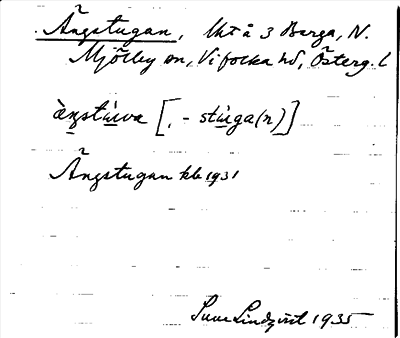 Ängstugan, lht å 3 Berga, N.
Mjölby sn, Vifolka hd, Österg. l
àṉstu̱wa [, - stu̱ga(n)]
Ängstugan kbl 1931
Sune Lindqvist 1935